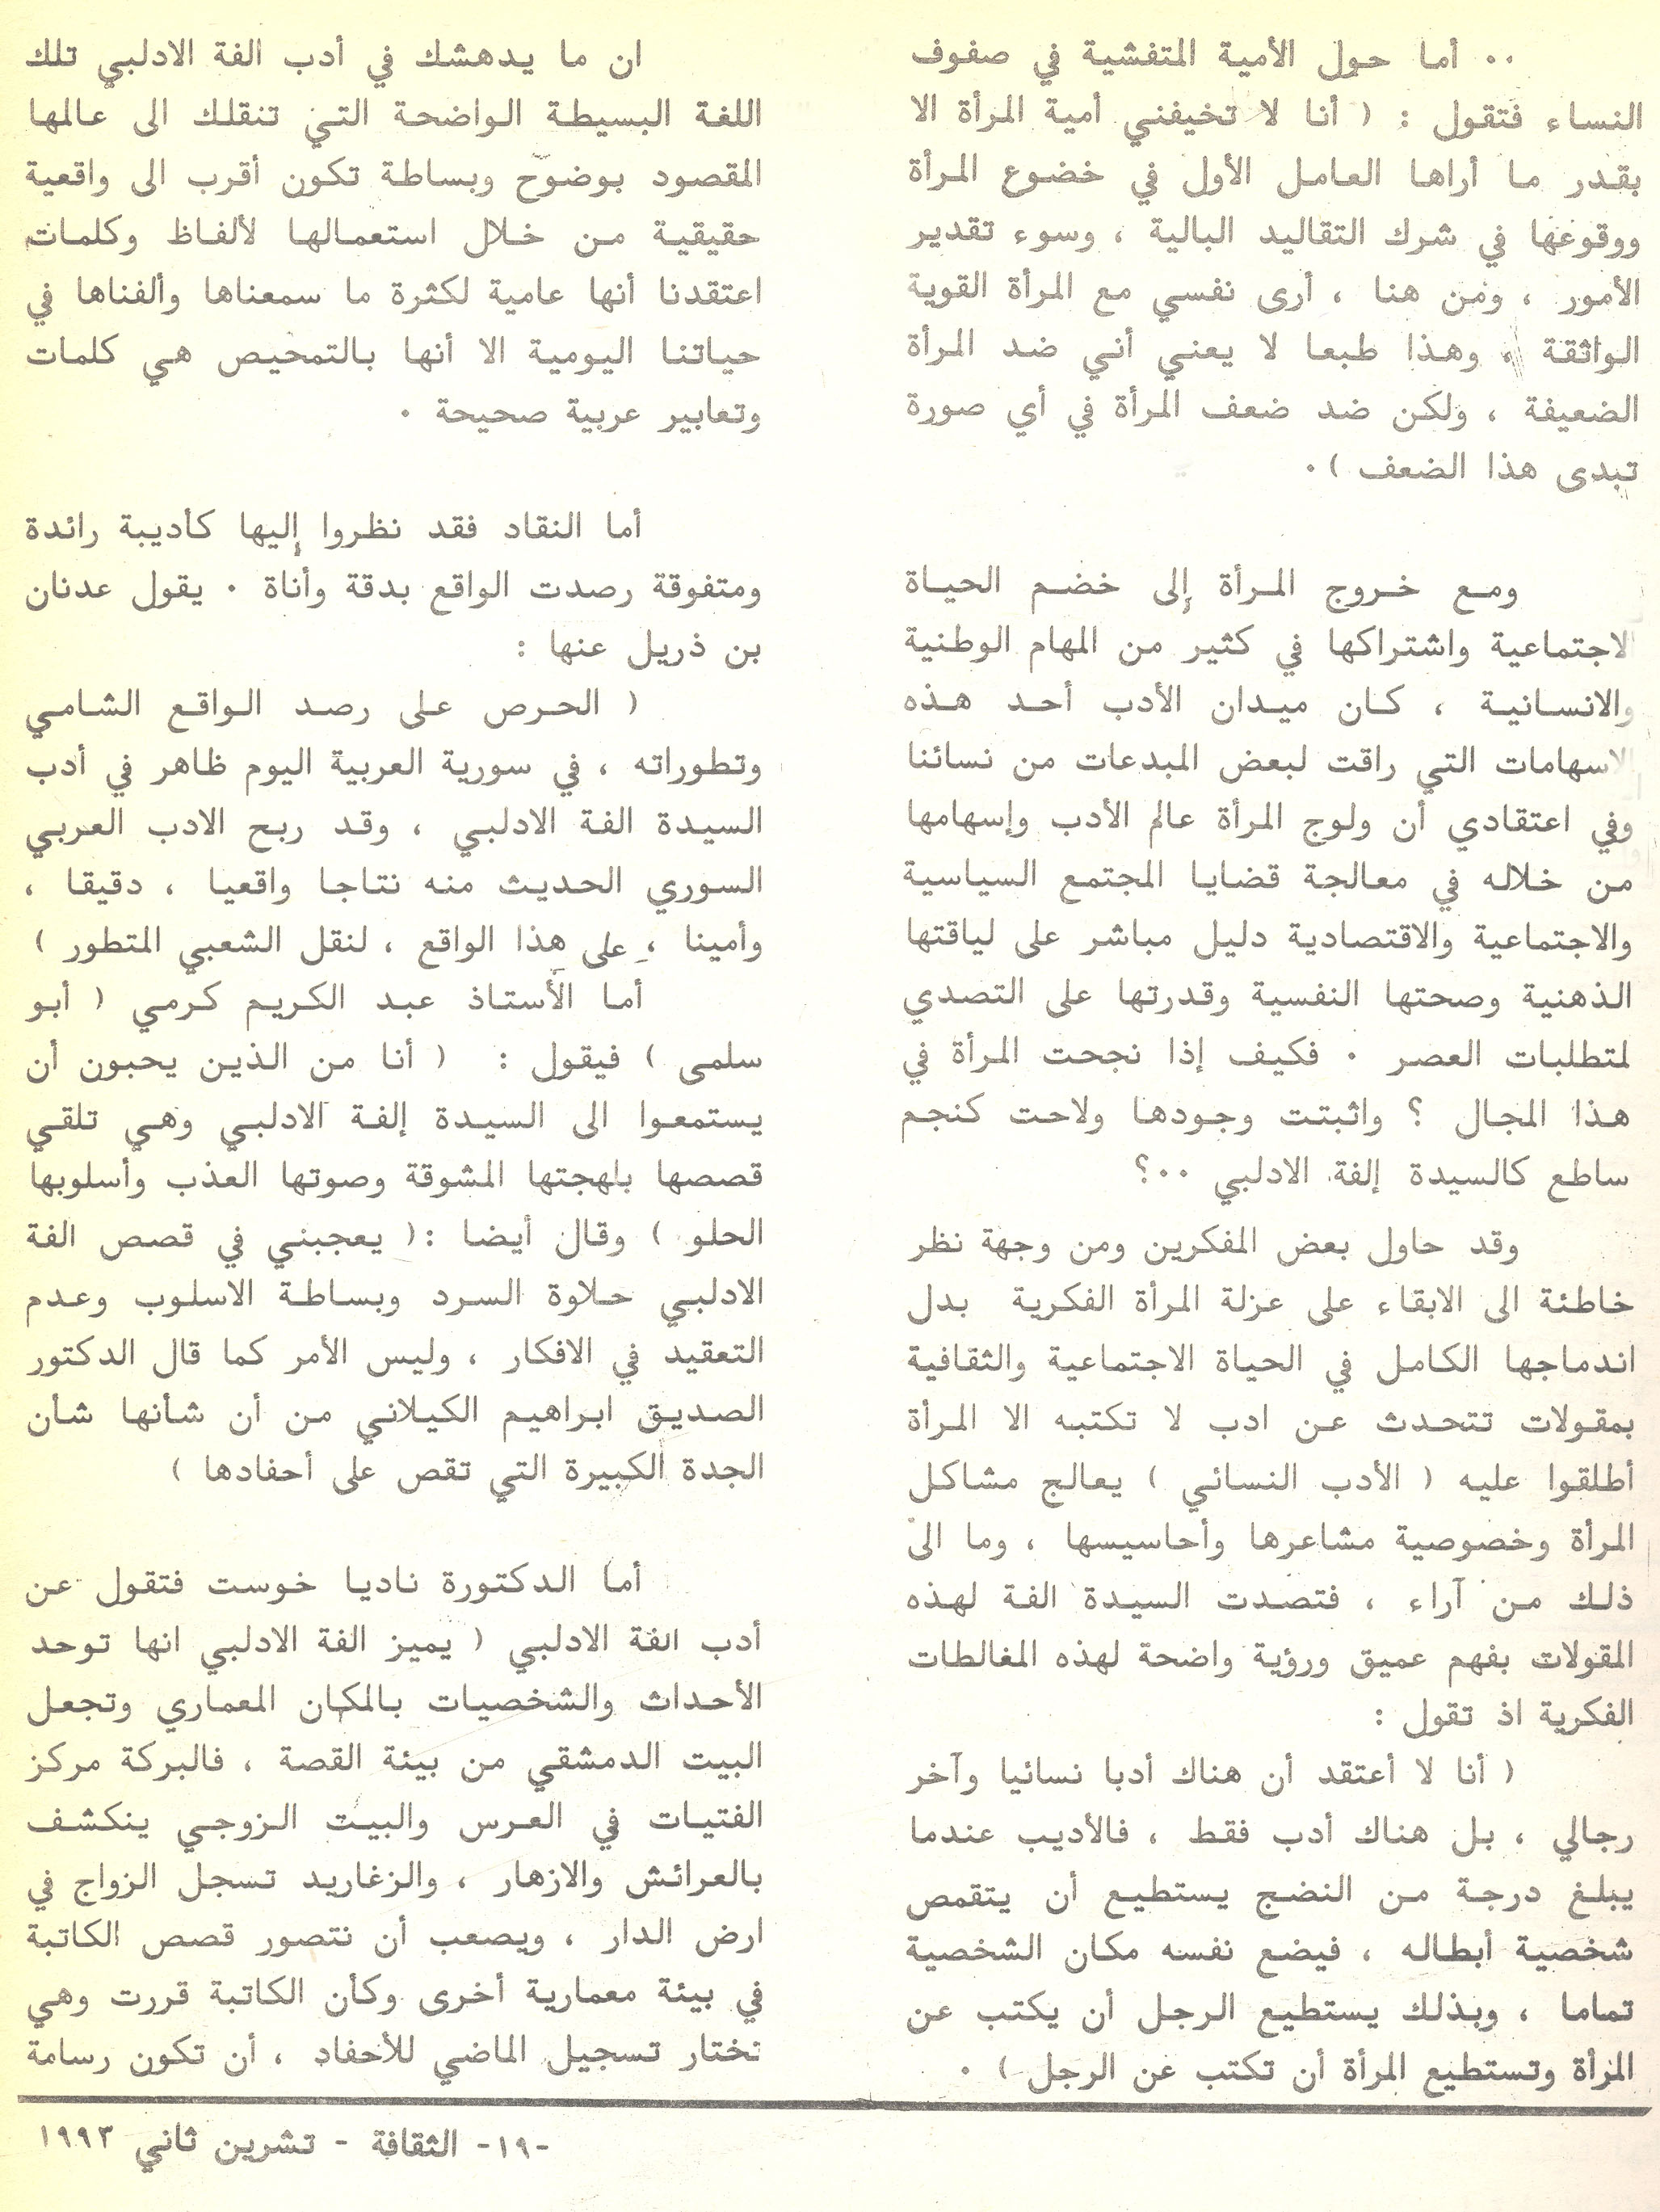 .. أما حول الأمية المتفشية في صفوف
النساء فتقول : ( أنا لا تخيفني أمية المرأة الا
بقدر ما أراها العامل الأول في خضوع المرأة
ووقوعها في شرك التقاليد البالية ، وسوء تقدير
الأمور ، ومن هنا ، أرى نفسي مع المرأة القوية
الواثقة ، وهذا طبعا لا يعني أني ضد المرأة
الضعيفة ، ولكن ضد ضعف المرأة في أي صورة
تبدى هذا الضعف ) .
ومع خروج المرأة إلى خضم الحياة
الاجتماعية واشتراكها في كثير من المهام الوطنية
والانسانية ، كان ميدان الأدب أحد هذه
الاسهامات التي راقت لبعض المبدعات من نسائنا
وفي اعتقادي أن ولوج المرأة عالم الأدب وإسهامها
من خلاله في معالجة قضايا المجتمع السياسية
والاجتماعية والاقتصادية دليل مباشر على لياقتها
الذهنية وصحتها النفسية وقدرتها على التصدي
لمتطلبات العصر . فكيف إذا نجحت المرأة في
هذا المجال ؟ واثبتت وجودها ولاحت كنجم
ساطع كالسيدة إلفة الادلبي ..؟
وقد حاول بعض المفكرين ومن وجهة نظر
خاطئة الى الابقاء على عزلة المرأة الفكرية بدل
اندماجها الكامل في الحياة الاجتماعية والثقافية
بمقولات تتحدث عن ادب لا تكتبه الا المرأة
أطلقوا عليه ( الأدب النسائي ) يعالج مشاكل
المرأة وخصوصية مشاعرها وأحاسيسها ، وما الى
ذلك من آراء ، فتصدت السيدة الفة لهذه
المقولات بفهم عميق ورؤية واضحة لهذه المغالطات
الفكرية اذ تقول :
( أنا لا أعتقد أن هناك أدبا نسائيا وآخر
رجالي ، بل هناك أدب فقط ، فالأديب عندما
يبلغ درجة من النضج يستطيع أن يتقمص
شخصية أبطاله ، فيضع نفسه مكان الشخصية
تماما ، وبذلك يستطيع الرجل أن يكتب عن
المرأة وتستطيع المرأة أن تكتب عن الرجل ) .
ان ما يدهشك في أدب الفة الادلبي تلك
اللغة البسيطة الواضحة التي تنقلك الى عالمها
المقصود بوضوح وبساطة تكون أقرب الى واقعية
حقيقية من خلال استعمالها لألفاظ وكلمات
اعتقدنا أنها عامية لكثرة ما سمعناها وألفناها في
حياتنا اليومية الا أنها بالتمحيص هي كلمات
وتعابير عربية صحيحة .
أما النقاد فقد نظروا إليها كأديبة رائدة
ومتفوقة رصدت الواقع بدقة وأناة . يقول عدنان
بن ذريل عنها :
( الحرص على رصد الواقع الشامي
وتطوراته ، في سورية العربية اليوم ظاهر في أدب
السيدة الفة الادلبي ، وقد ربح الادب العربي
السوري الحديث منه نتاجا واقعيا ، دقيقا ،
وأمينا ، على هذا الواقع ، لنقل الشعبي المتطور )
أما الأستاذ عبد الكريم كرمي ( أبو
سلمى ) فيقول : ( أنا من الذين يحبون أن
يستمعوا الى السيدة إلفة الادلبي وهي تلقي
قصصها بلهجتها المشوقة وصوتها العذب وأسلوبها
الحلو ) وقال أيضا :( يعجبني في قصص الفة
الادلبي حلاوة السرد وبساطة الاسلوب وعدم
التعقيد في الافكار ، وليس الأمر كما قال الدكتور
الصديق ابراهيم الكيلاني من أن شأنها شأن
الجدة الكبيرة التي تقص على أحفادها )
أما الدكتورة ناديا خوست فتقول عن
أدب الفة الادلبي ( يميز الفة الادلبي انها توحد
الأحداث والشخصيات بالمكان المعماري وتجعل
البيت الدمشقي من بيئة القصة ، فالبركة مركز
الفتيات في العرس والبيت الزوجي ينكشف
بالعرائش والازهار ، والزغاريد تسجل الزواج في
ارض الدار ، ويصعب أن نتصور قصص الكاتبة
في بيئة معمارية أخرى وكأن الكاتبة قررت وهي
تختار تسجيل الماضي للأحفاد ، أن تكون رسامة
-١٩- الثقافة - تشرين ثاني ١٩٩٣